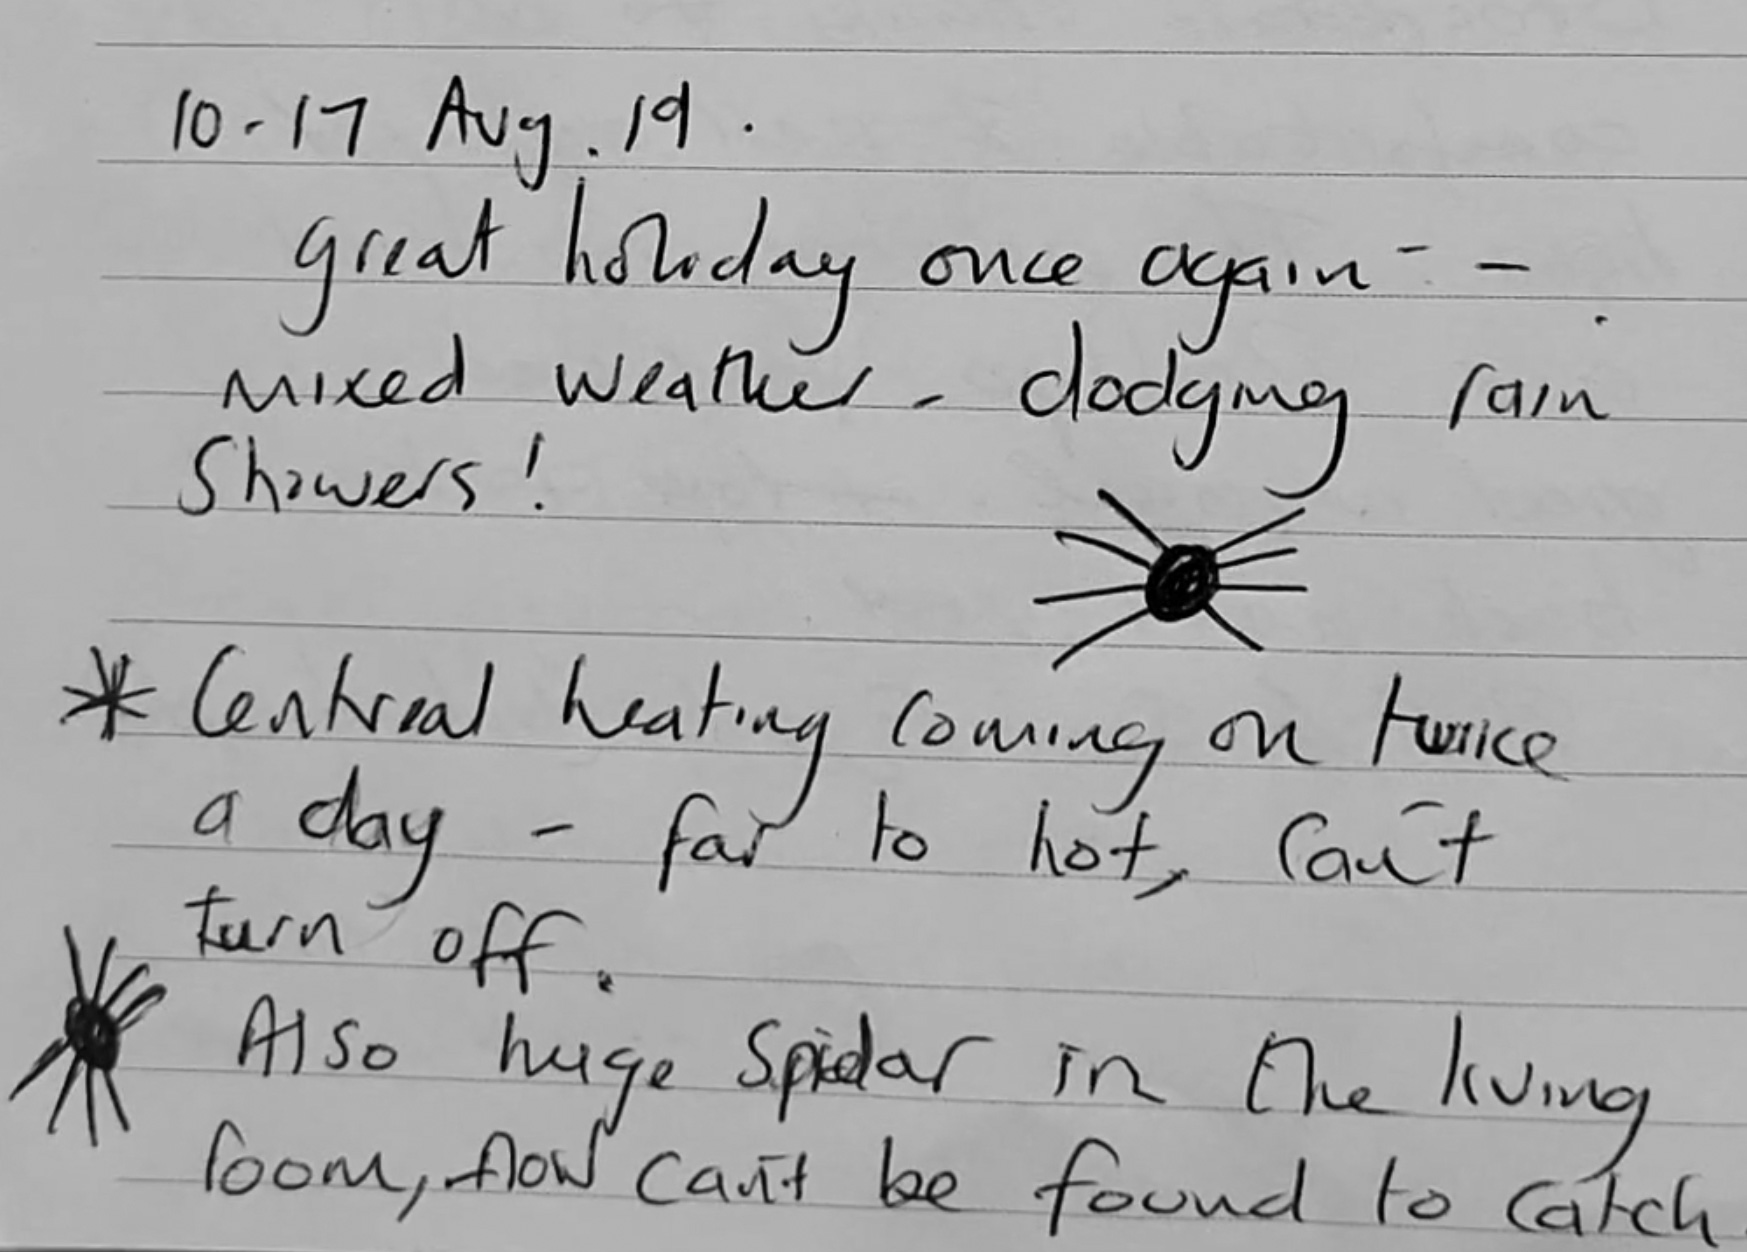 10-17 Aug. 19.
great holiday once again - -
mixed weather - dodging rain
Showers!
* Centreal heating coming on twice
a day - far to hot, can't
turn off.
Also huge Spidar in the living
room, now can't be found to catch